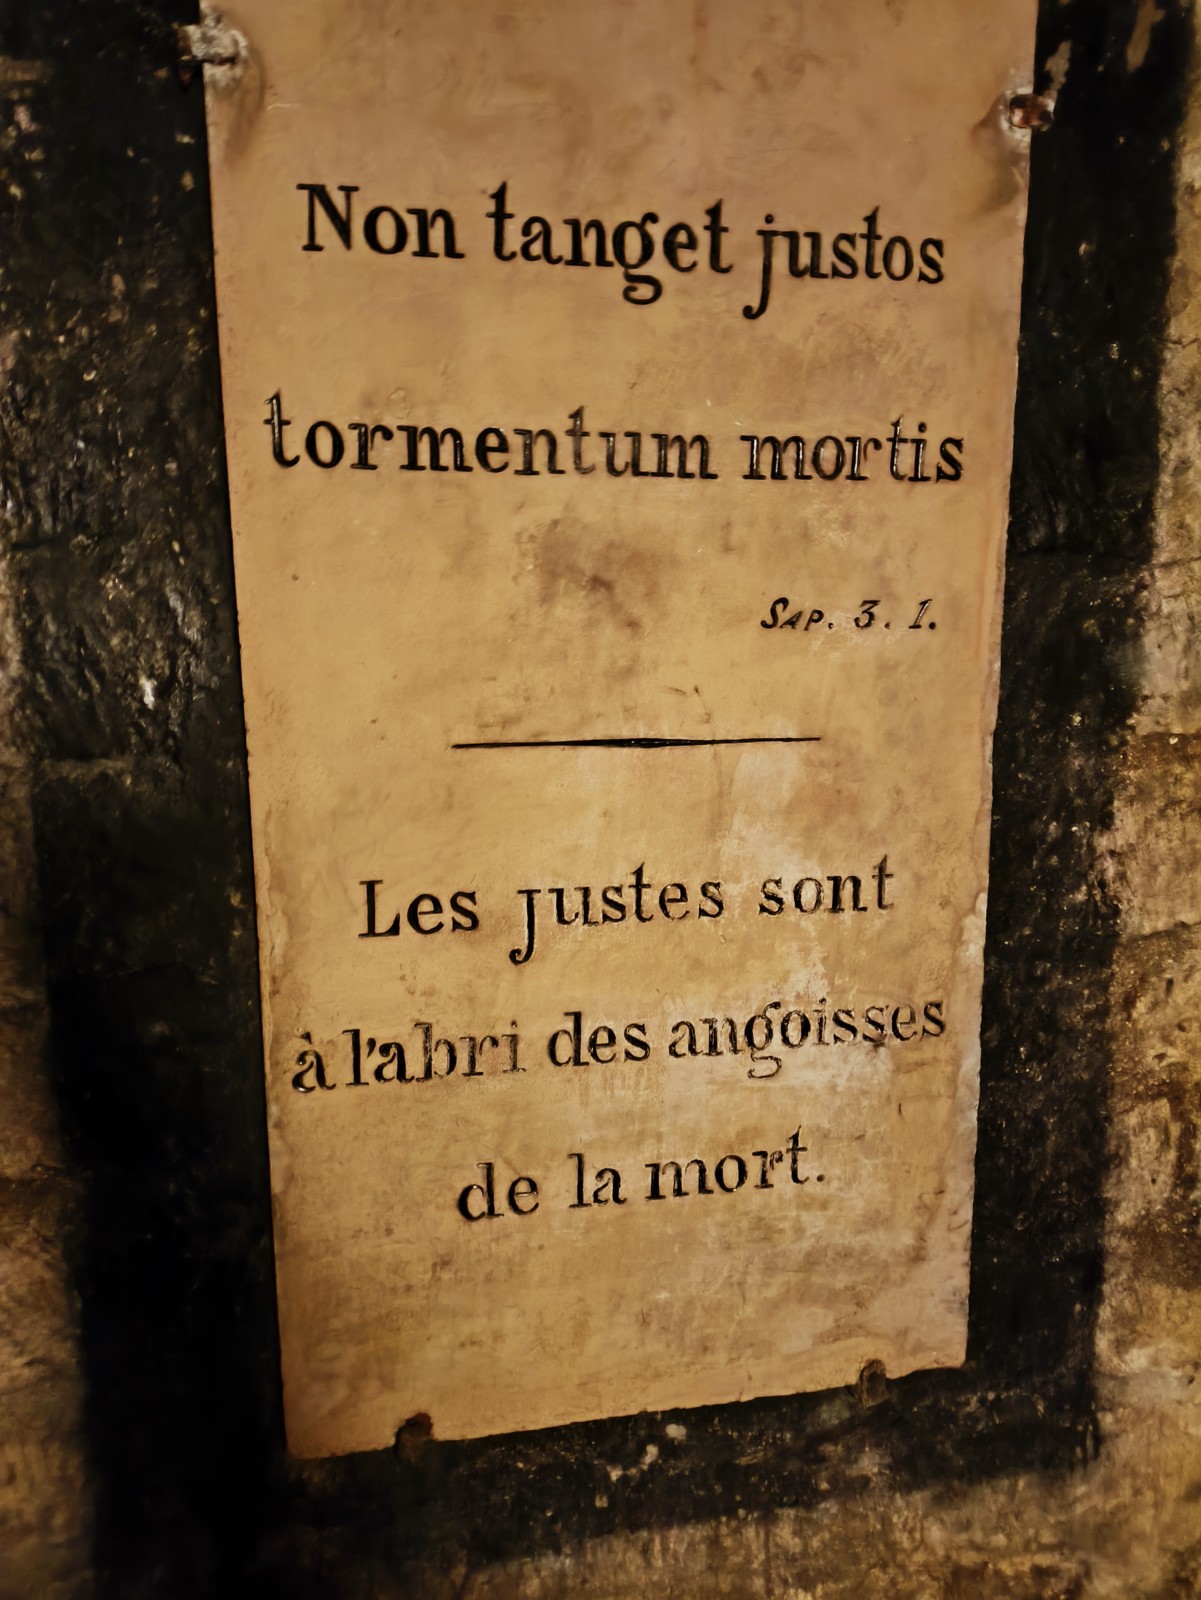 Non tanget justos
tormentum mortis
SAP. 3. 1.
Les justes sont
à l'abri des angoisses
de la mort.